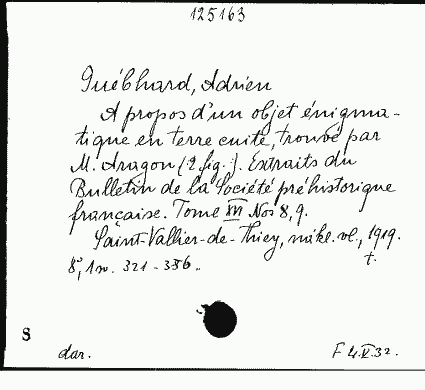 125163
Guébhard, Adrien
A propos d'un objet énigma-
tique en terre cuite, trouvé par
M. Aragon (2 fig.). Extraits du
Bulletin de la Société préhistorique
française. Tome XVI Nos 8, 9.
Saint-Vallier-de-Thiey, nákl. vl., 1919.
8°, 1 sv. 321-336. t.
S
dar.
F 4.V.32.